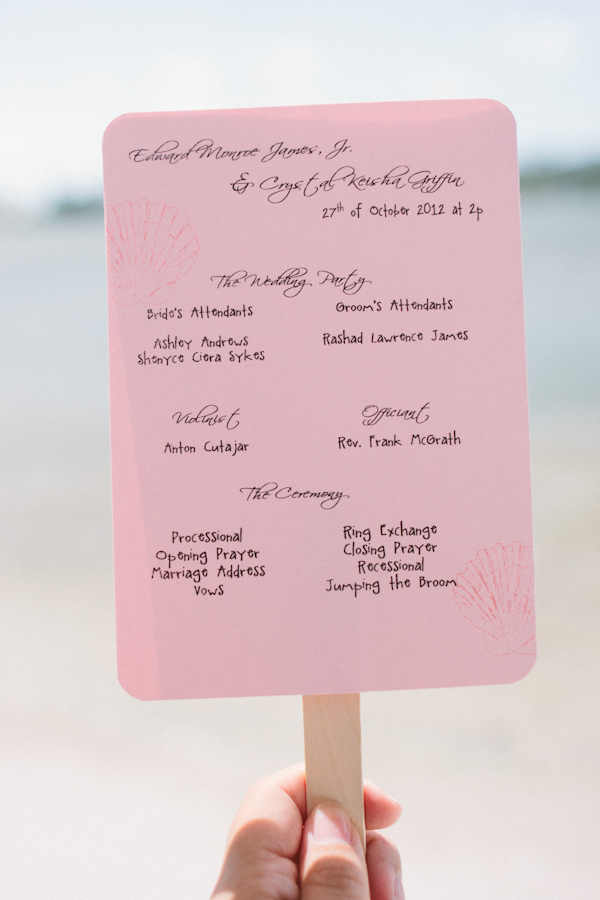 Edward Monroe James, Jr.
& Crystal Keisha Griffin
27th of October 2012 at 2p
The Wedding Party
Bride's Attendants
Ashley Andrews
Shenyce Ciera Sykes
Groom's Attendants
Rashad Lawrence James
Violinist
Anton Cutajar
Officiant
Rev. Frank McGrath
The Ceremony
Processional
Opening Prayer
Marriage Address
Vows
Ring Exchange
Closing Prayer
Recessional
Jumping the Broom